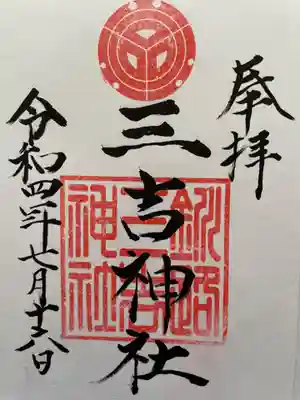 奉拝
三吉神社
釧路三吉神社
令和四年七月十六日